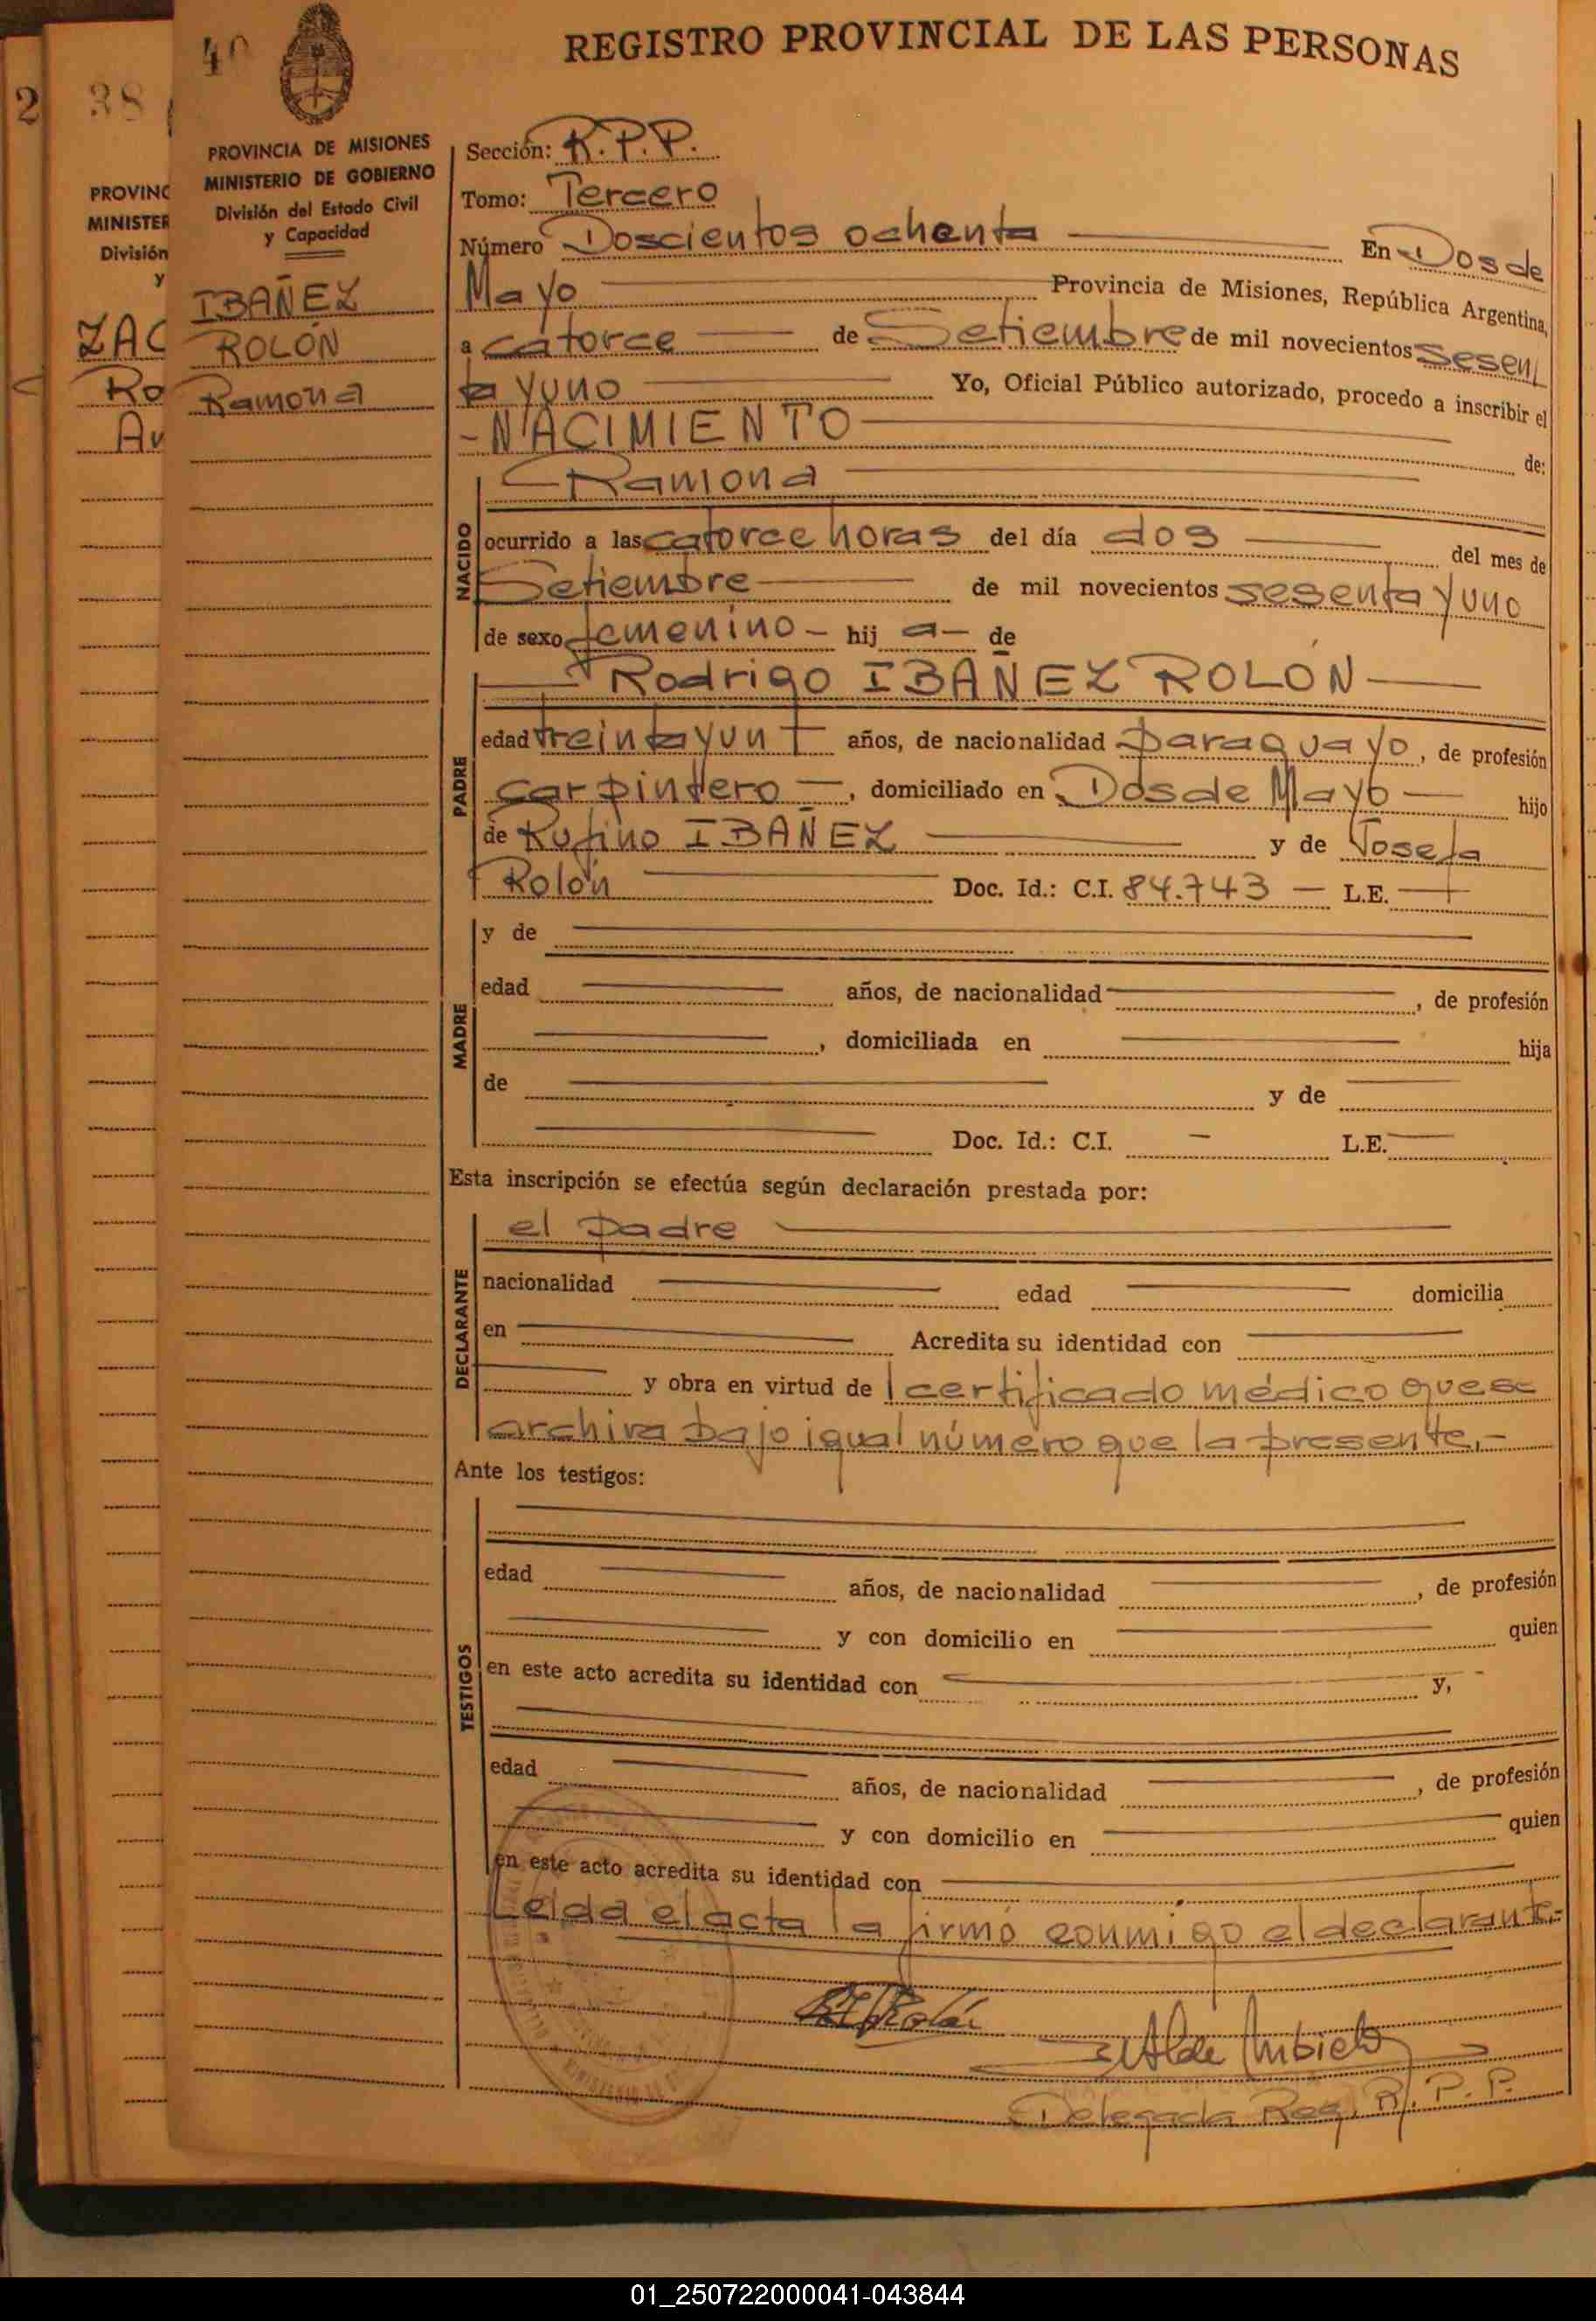 40
REGISTRO PROVINCIAL DE LAS PERSONAS
2
38
PROVINC
MINISTER
División
y
ZAC
Ro
PROVINCIA DE MISIONES
MINISTERIO DE GOBIERNO
División del Estado Civil
y Capacidad
IBAÑEZ
ROLÓN
Ramona
Sección: R.P.P.
Tomo: Tercero
Número Doscientos ochenta En Dos de
Mayo Provincia de Misiones, República Argentina,
a catorce de Setiembre de mil novecientos sesen
ta y uno Yo, Oficial Público autorizado, procedo a inscribir el
- NACIMIENTO de:
NACIDO
Ramona
ocurrido a las catorce horas del día dos del mes de
Setiembre de mil novecientos sesenta y uno
de sexo femenino - hij a - de
PADRE
Rodrigo IBAÑEZ ROLÓN
edad treinta y un años, de nacionalidad paraguayo, de profesión
carpintero -, domiciliado en Dos de Mayo - hijo
de Rufino IBAÑEZ y de Josefa
Rolón Doc. Id.: C.I. 84.743 - L.E.
MADRE
y de
edad años, de nacionalidad , de profesión
, domiciliada en hija
de y de
Doc. Id.: C.I. - L.E.
Esta inscripción se efectúa según declaración prestada por:
DECLARANTE
el padre
nacionalidad edad domicilia
en Acredita su identidad con
y obra en virtud de l certificado médico que se
archiva bajo igual número que la presente.-
Ante los testigos:
TESTIGOS
edad años, de nacionalidad , de profesión
y con domicilio en quien
en este acto acredita su identidad con y,
edad años, de nacionalidad , de profesión
y con domicilio en quien
en este acto acredita su identidad con
Leída el acta la firmó conmigo el declarante.-
Delegada Reg. R.P.P.
01_250722000041-043844